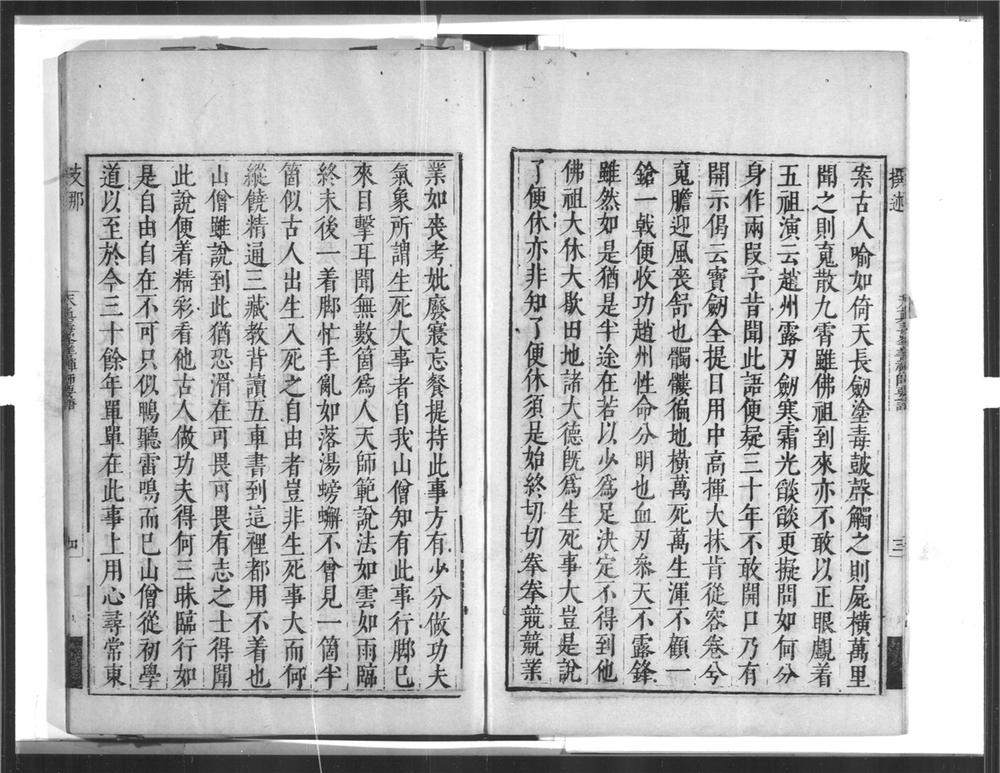 撰述
案古人喻如倚天長劔塗毒皷聲觸之則屍橫萬里
聞之則䰟散九霄雖佛祖到來亦不敢以正眼覷着
五祖演云趙州露刃劔寒霜光燄燄更擬問如何分
身作兩段予昔聞此語便疑三十年不敢開口乃有
開示偈云寶劔全提日用中高揮大抹肯從容卷兮
䰟膽迎風喪舒也髑髏徧地橫萬死萬生渾不顧一
鎗一戟便收功趙州性命分明也血刃叅天不露鋒
雖然如是猶是半途在若以少爲足決定不得到他
佛祖大休大歇田地諸大德旣爲生死事大豈是說
了便休亦非知了便休須是始終切切拳拳競競業
三
業如喪考妣廢寢忘餐提持此事方有少分做功夫
氣象所謂生死大事者自我山僧知有此事行脚已
來目擊耳聞無數箇爲人天師範說法如雲如雨臨
終末後一着脚忙手亂如落湯螃蠏不曾見一箇半
箇似古人出生入死之自由者豈非生死事大而何
縱饒精通三藏教背讀五車書到這裡都用不着也
山僧雖說到此猶恐滑在可畏可畏有志之士得聞
此說便着精彩看他古人做功夫得何三昧臨行如
是自由自在不可只似鴨聽雷鳴而已山僧從初學
道以至於今三十餘年單單在此事上用心尋常東
支那
四